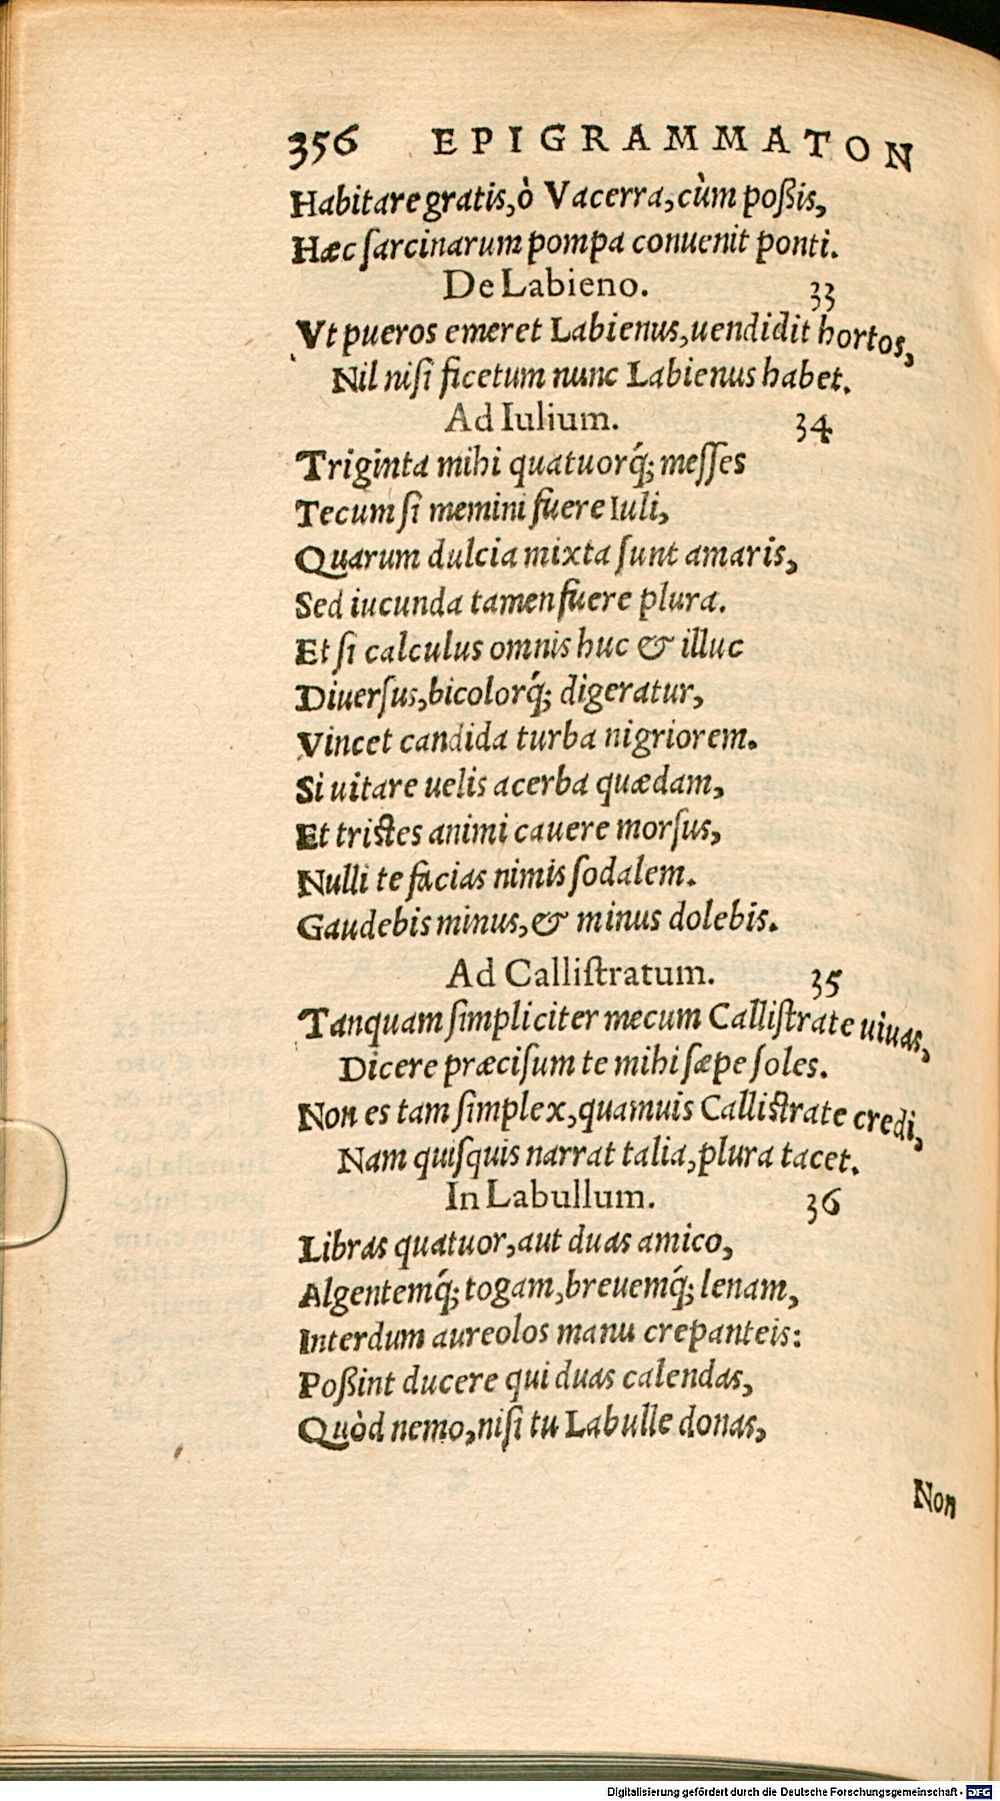 356 EPIGRAMMATON
Habitare gratis, ò Vacerra, cùm poßis,
Hæc ſarcinarum pompa conuenit ponti.
De Labieno. 33
Vt pueros emeret Labienus, uendidit hortos,
Nil niſi ficetum nunc Labienus habet.
Ad Iulium. 34
Triginta mihi quatuorq́; meſſes
Tecum ſi memini fuere Iuli,
Quarum dulcia mixta ſunt amaris,
Sed iucunda tamen fuere plura.
Et ſi calculus omnis huc & illuc
Diuerſus, bicolorq́; digeratur,
Vincet candida turba nigriorem.
Si uitare uelis acerba quædam,
Et triſtes animi cauere morſus,
Nulli te facias nimis ſodalem.
Gaudebis minus, & minus dolebis.
Ad Calliſtratum. 35
Tanquam ſimpliciter mecum Calliſtrate uiuas,
Dicere præciſum te mihi ſæpe ſoles.
Non es tam ſimplex, quamuis Calliſtrate credi,
Nam quiſquis narrat talia, plura tacet.
In Labullum. 36
Libras quatuor, aut duas amico,
Algentemq́; togam, breuemq́; lenam,
Interdum aureolos manu crepanteis:
Poßint ducere qui duas calendas,
Quòd nemo, niſi tu Labulle donas,
Non
Digitalisierung gefördert durch die Deutsche Forschungsgemeinschaft - DFG